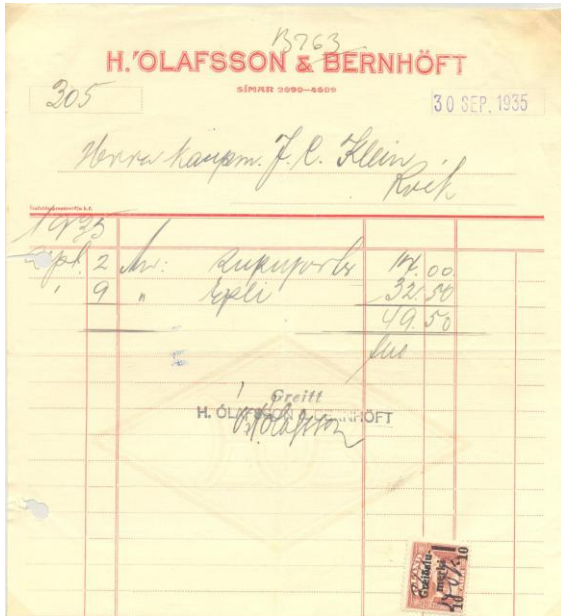 B763
H. ÓLAFSSON & BERNHÖFT
SÍMAR 2090—4609
305
30 SEP. 1935
Herra kaupm. J. C. Klein
Rvík
1935
Sept. 2 An: 17.00
" 9 " Epli 32.50
49.50
Greitt
H. ÓLAFSSON & BERNHÖFT
Ólafsson
Greiðslu-
merki
10 10